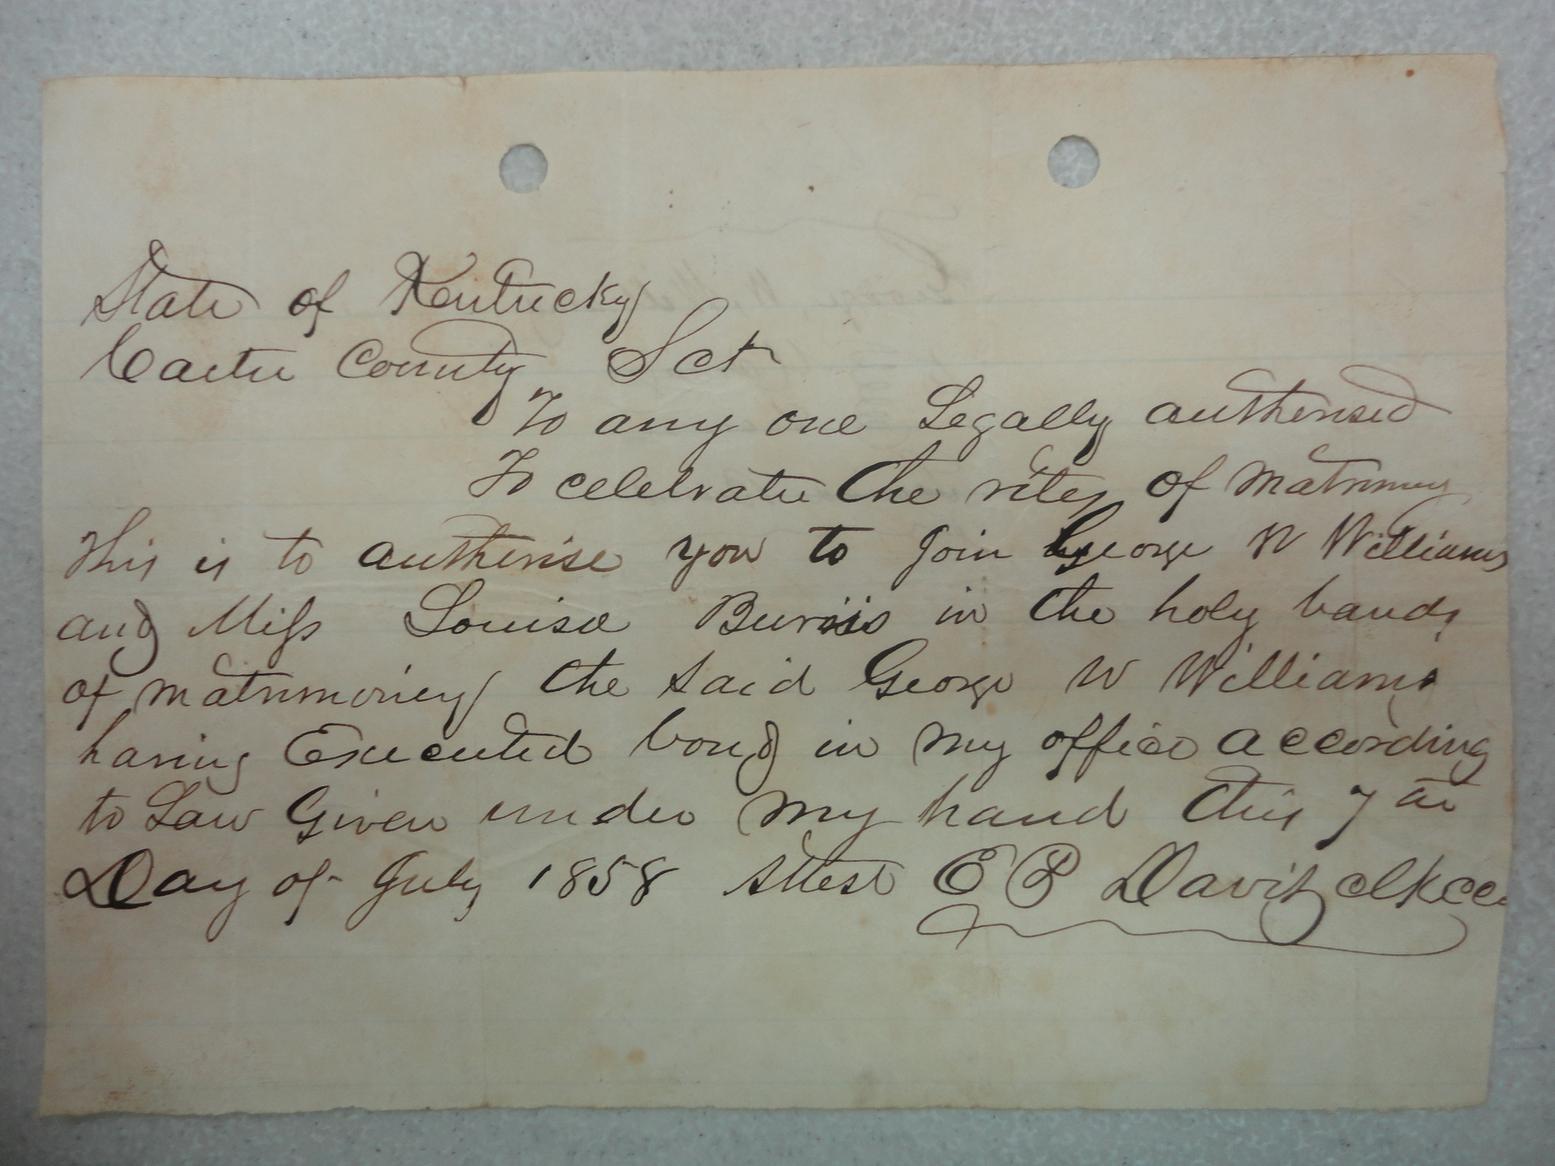 State of Kentucky
Carter County Sct
To any one Legally authorised
To celebrate the rites of Matrimony
This is to authorise you to join George W Williams
and Miss Louisa Burris in the holy bands
of matrimoney the said George W Williams
having Executed bond in my office according
to Law Given under my hand this 7th
Day of July 1858 Attest E P Davis clkcc